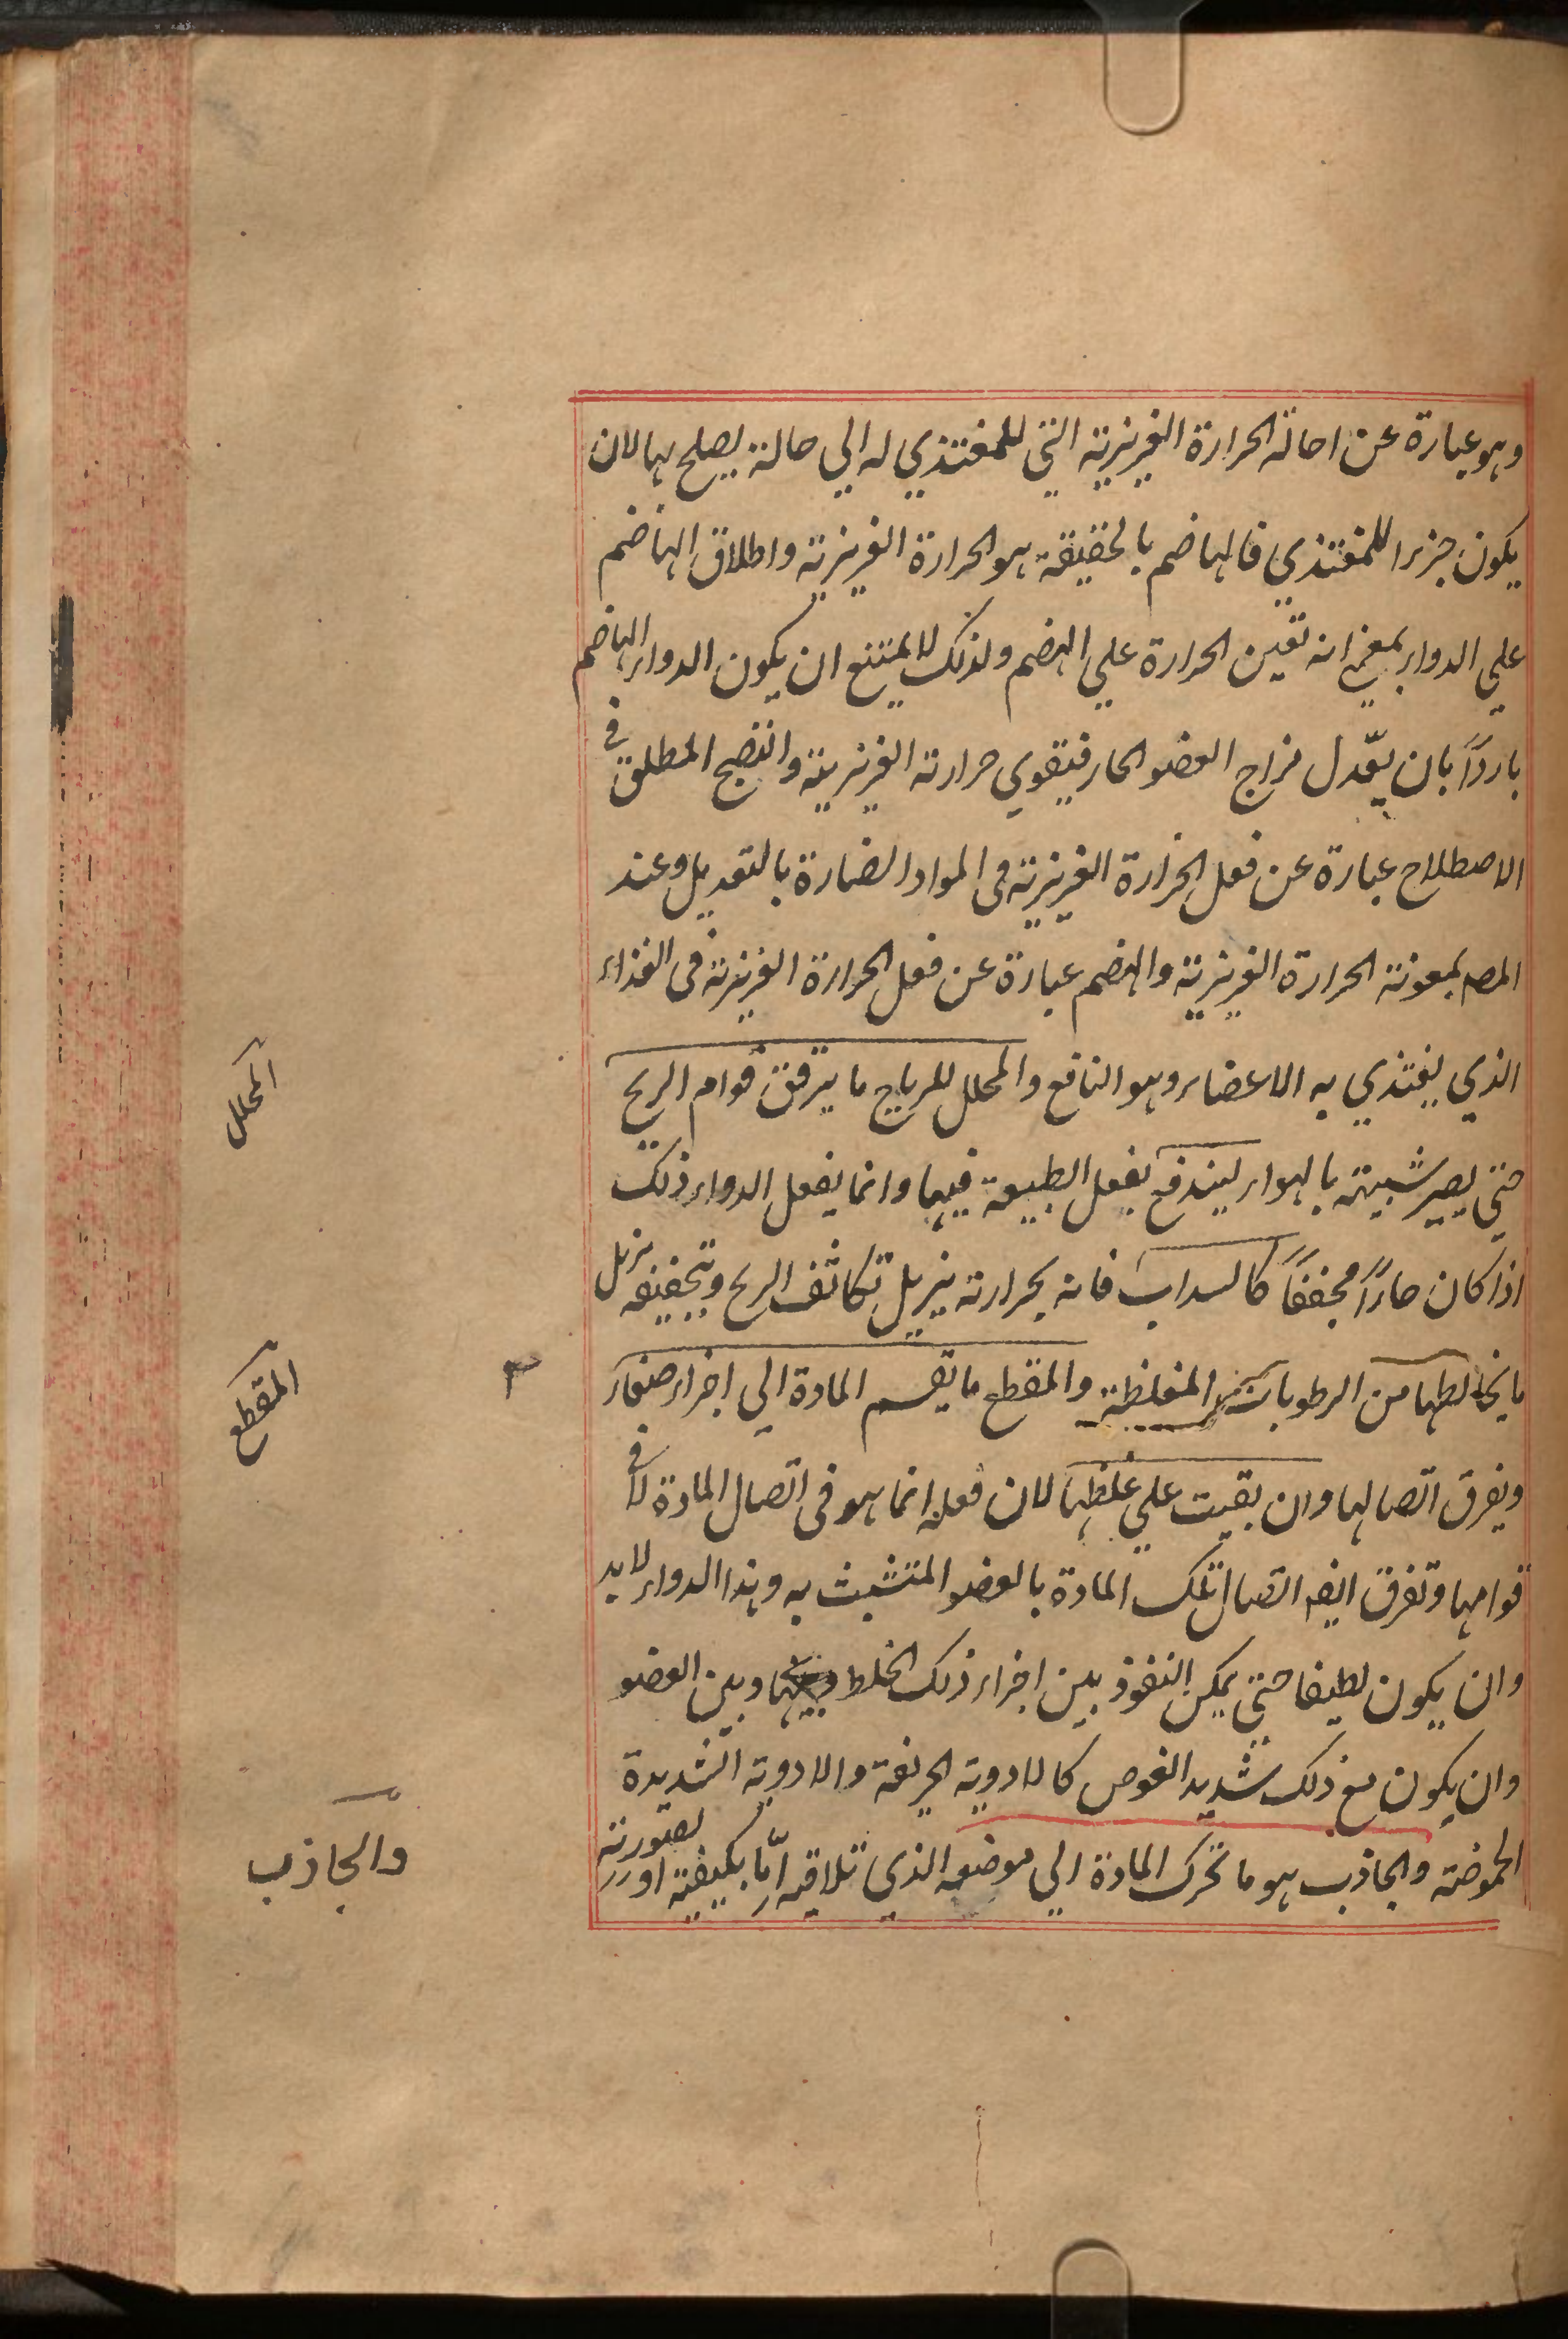 وهو عبارة عن احالة الحرارة الغريزية التي للمغتذي له الي حالة يصلح بها لان
يكون جزءا للمغتذي فالهاضم بالحقيقة هو الحرارة الغريزية واطلاق الهاضم
علي الدواء بمعني انه تعين الحرارة علي الهضم ولذلك لا يمتنع ان يكون الدواء الهاضم
باردًا بان يعّدل مزاج العضو الحار فيتقوي حرارته الغريزية والنضج المطلق في
الاصطلاح عبارة عن فعل الحرارة الغريزية في المواد الضارة بالتعديل وعند
المص بمعونة الحرارة الغريزية والهضم عبارة عن فعل الحرارة الغريزية في الغذاء
الذي يغتذي به الاعضاء وهو النافع والمحلل للرياح ما يرقق قوام الريح
حتي يصير شبيهة بالهواء ليندفع بفعل الطبيعة فيها وانما يفعل الدواء ذلك
اذا كان حارًا مجففًا كالسداب فانه بحرارته يزيل تكاثف الريح وبتجفيفه يزيل
ما يخالطها من الرطوبات المغلظة والمقطع ما يقسم المادة الي اجزاء صغار
ويفرق اتصالها وان بقيت علي غلظها لان فعله انما هو في اتصال المادة لا في
قوامها وتفرق ايضا اتصال تلك المادة بالعضو المتشبث به وهذا الدواء لا بد
وان يكون لطيفا حتي يمكن النفوذ بين اجزاء ذلك الخلط وبينها وبين العضو
وان يكون مع ذلك شديد الغوص كالادوية الحريفة والادوية الشديدة
الحموضة والجاذب هو ما تحرك المادة الي موضعه الذي تلاقيه امّا بكيفيته او بصورته
المحلل
المقطع
والجاذب